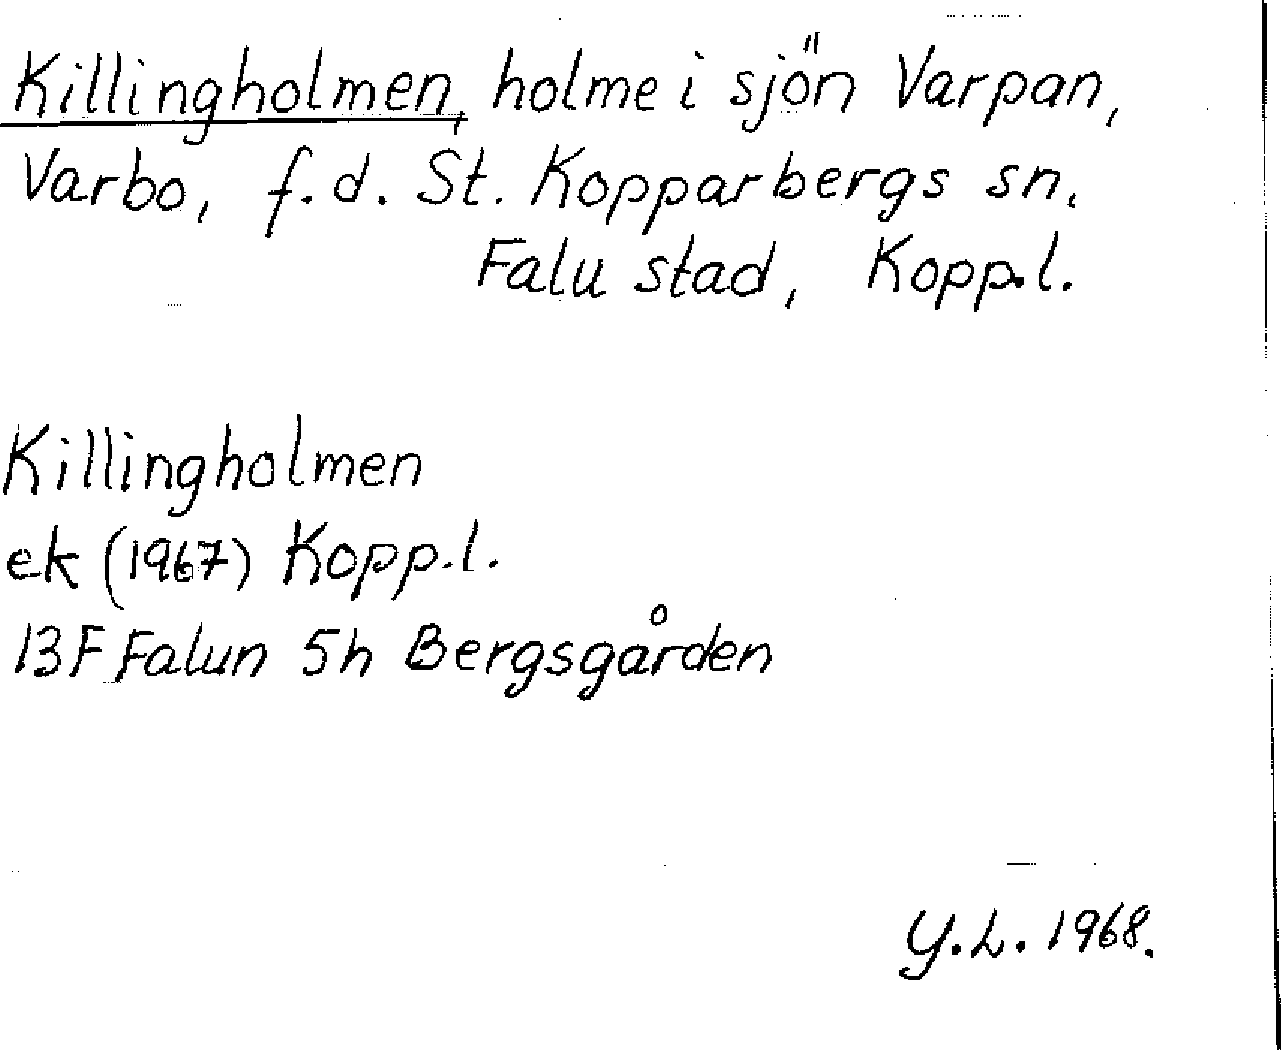 Killingholmen, holme i sjön Varpan,
Varbo, f.d. St. Kopparbergs sn.
Falu stad, Kopp.l.
Killingholmen
ek (1967) Kopp.l.
13F Falun 5h Bergsgården
Y.L. 1968.